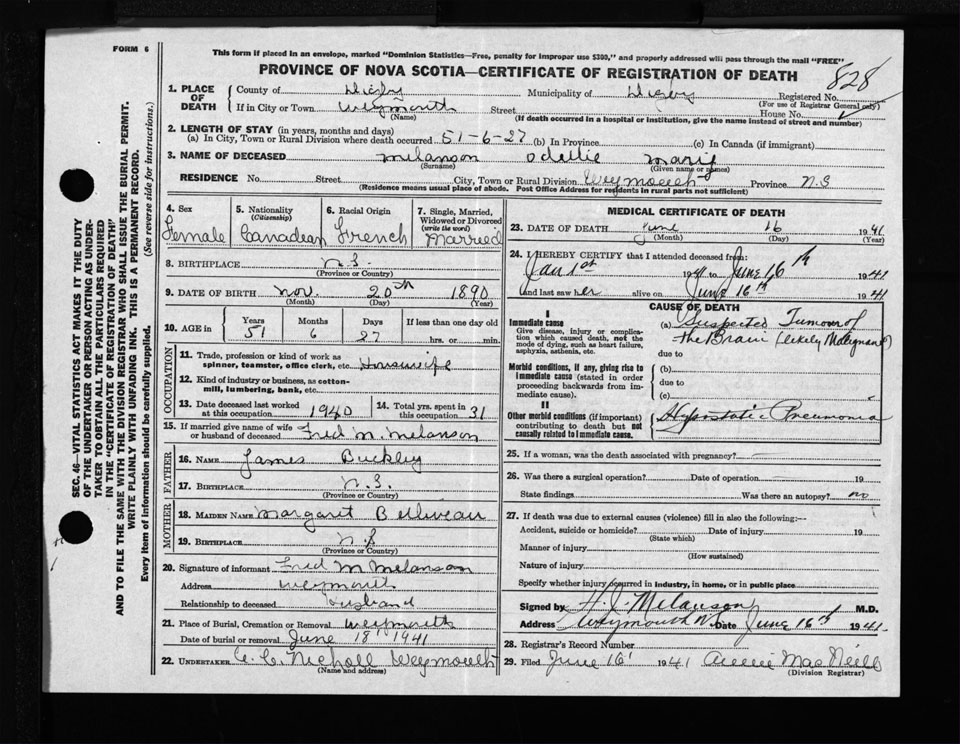 FORM 6
This form if placed in an envelope, marked "Dominion Statistics—Free, penalty for improper use $300," and properly addressed will pass through the mail "FREE"
PROVINCE OF NOVA SCOTIA—CERTIFICATE OF REGISTRATION OF DEATH
828
1. PLACE OF DEATH
County of Digby Municipality of Digby Registered No.
(For use of Registrar General only)
If in City or Town Weymouth Street House No.
(Name) (If death occurred in a hospital or institution, give the name instead of street and number)
2. LENGTH OF STAY (in years, months and days)
(a) In City, Town or Rural Division where death occurred 51-6-27 (b) In Province (c) In Canada (if immigrant)
3. NAME OF DECEASED Melanson Odellie Marie
(Surname) (Given name or names)
RESIDENCE No. Street City, Town or Rural Division Weymouth Province N.S
(Residence means usual place of abode. Post Office Address for residents in rural parts not sufficient)
4. Sex Female
5. Nationality (Citizenship) Canadean
6. Racial Origin French
7. Single, Married, Widowed or Divorced (write the word) Married
8. BIRTHPLACE N.S.
(Province or Country)
9. DATE OF BIRTH Nov. 20th 1890
(Month) (Day) (Year)
10. AGE in Years 51 Months 6 Days 27 If less than one day old hrs. or min.
OCCUPATION
11. Trade, profession or kind of work as spinner, teamster, office clerk, etc. Housewife
12. Kind of industry or business, as cotton-mill, lumbering, bank, etc.
13. Date deceased last worked at this occupation 1940
14. Total yrs. spent in this occupation 31
15. If married give name of wife or husband of deceased Fred M. Melanson
FATHER
16. NAME James Buckley
17. BIRTHPLACE N.S.
(Province or Country)
MOTHER
18. MAIDEN NAME Margaret Belliveau
19. BIRTHPLACE N.S
(Province or Country)
20. Signature of informant Fred M Melanson
Address Weymouth
Relationship to deceased husband
21. Place of Burial, Cremation or Removal Weymouth
Date of burial or removal June 18 1941
22. UNDERTAKER Nicholl Weymouth
(Name and address)
MEDICAL CERTIFICATE OF DEATH
23. DATE OF DEATH June 16 1941
(Month) (Day) (Year)
24. I HEREBY CERTIFY that I attended deceased from:
Jan 1st 1941 to June 16th 1941
and last saw her alive on June 16th 1941
CAUSE OF DEATH
I
Immediate cause
Give disease, injury or complication which caused death, not the mode of dying, such as heart failure, asphyxia, asthenia, etc.
(a) Suspected Tumour of the Brain (likely Malignant)
due to
Morbid conditions, if any, giving rise to immediate cause (stated in order proceeding backwards from immediate cause).
(b)
due to
(c)
II
Other morbid conditions (if important) contributing to death but not causally related to immediate cause.
Hypostatic Pneumonia
25. If a woman, was the death associated with pregnancy?
26. Was there a surgical operation? Date of operation 19
State findings Was there an autopsy? no
27. If death was due to external causes (violence) fill in also the following:—
Accident, suicide or homicide? Date of injury 19
(State which)
Manner of injury
(How sustained)
Nature of injury
Specify whether injury occurred in industry, in home, or in public place
Signed by H. J. Melanson M.D.
Address Weymouth N. Date June 16th 1941
28. Registrar's Record Number
29. Filed June 16 1941 Annie MacNeill
(Division Registrar)
SEC. 46—VITAL STATISTICS ACT MAKES IT THE DUTY
OF THE UNDERTAKER OR PERSON ACTING AS UNDER-
TAKER TO OBTAIN ALL THE PARTICULARS REQUIRED
IN THE "CERTIFICATE OF REGISTRATION OF DEATH"
AND TO FILE THE SAME WITH THE DIVISION REGISTRAR WHO SHALL ISSUE THE BURIAL PERMIT.
WRITE PLAINLY WITH UNFADING INK. THIS IS A PERMANENT RECORD.
Every item of information should be carefully supplied. (See reverse side for instructions.)